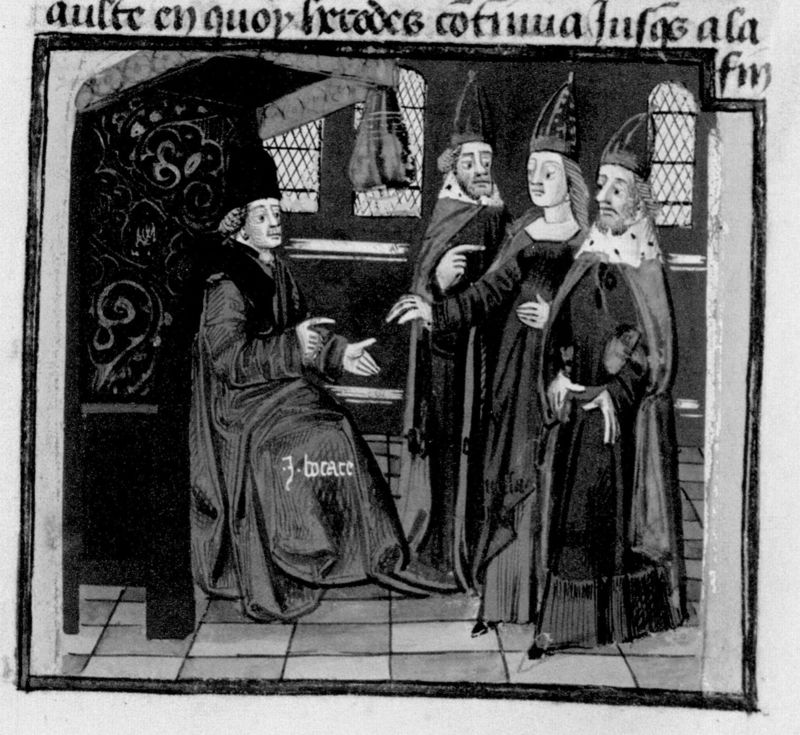 aulte en quoy herodes cōtinua Jusqs a la
fin
J. bocace